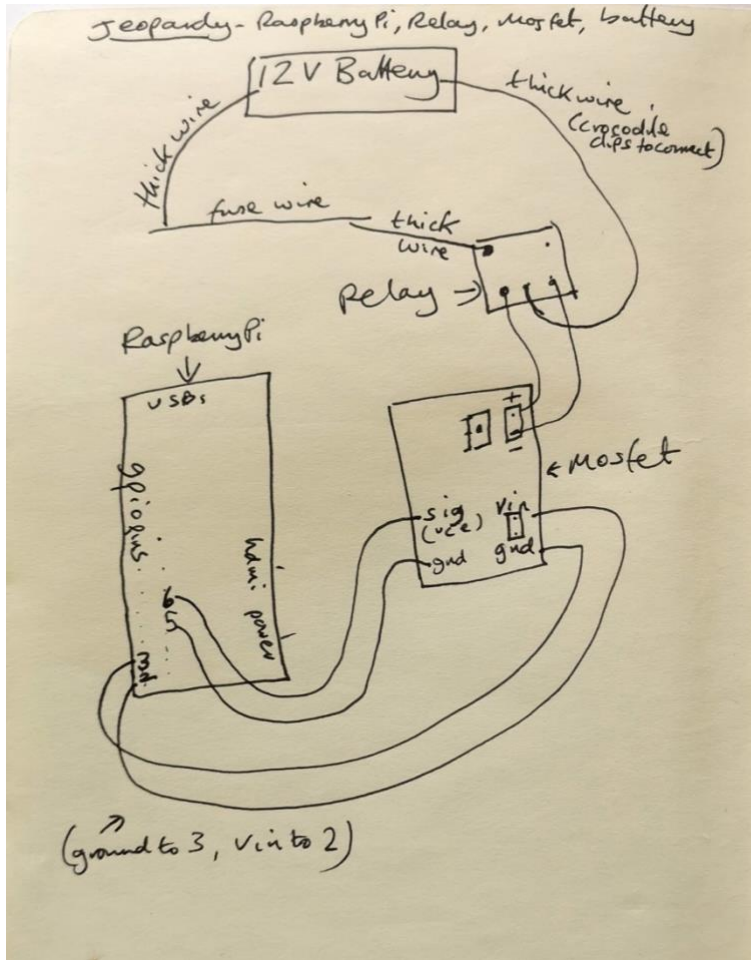 Jeopardy - RaspberryPi, Relay, Mosfet, battery
12V Battery
thick wire
(crocodile
clips to connect)
thick wire
fuse wire
thick
wire
Relay
RaspberryPi
USBs
gpio pins
hdmi
power
6
5
+
-
Mosfet
sig
Vin
gnd
gnd
(ground to 3, Vin to 2)